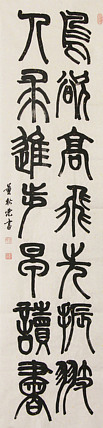 鳥欲高飛先振翅
人求進步早讀書
董松虎書